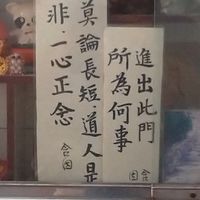 進出此門
所為何事
莫論長短·道人是
非·一心正念